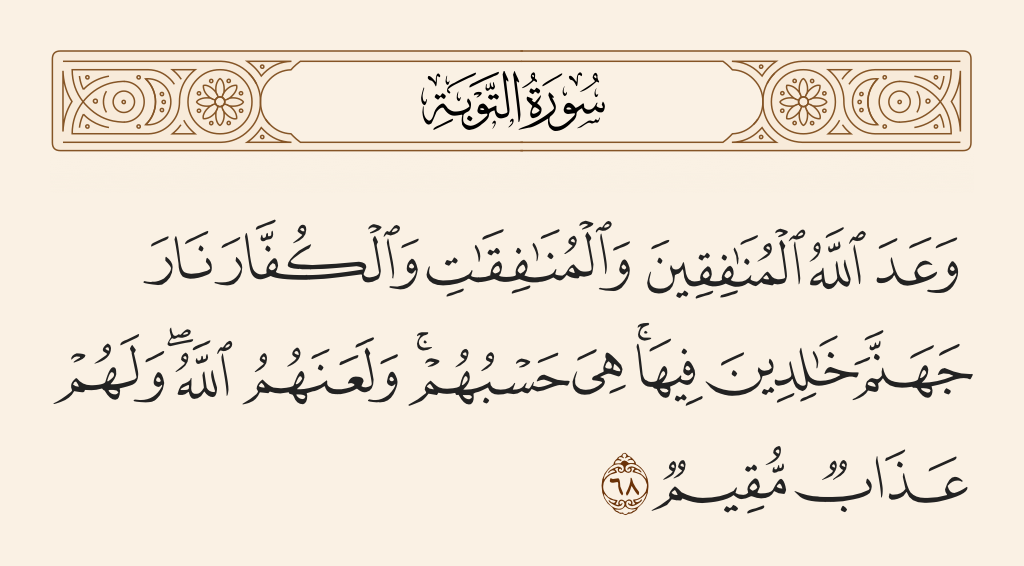 سُورَةُ التَّوْبَةِ
وَعَدَ ٱللَّهُ ٱلْمُنَـٰفِقِينَ وَٱلْمُنَـٰفِقَـٰتِ وَٱلْكُفَّارَ نَارَ
جَهَنَّمَ خَـٰلِدِينَ فِيهَا ۚ هِىَ حَسْبُهُمْ ۚ وَلَعَنَهُمُ ٱللَّهُ ۖ وَلَهُمْ
عَذَابٌ مُّقِيمٌ ٦٨